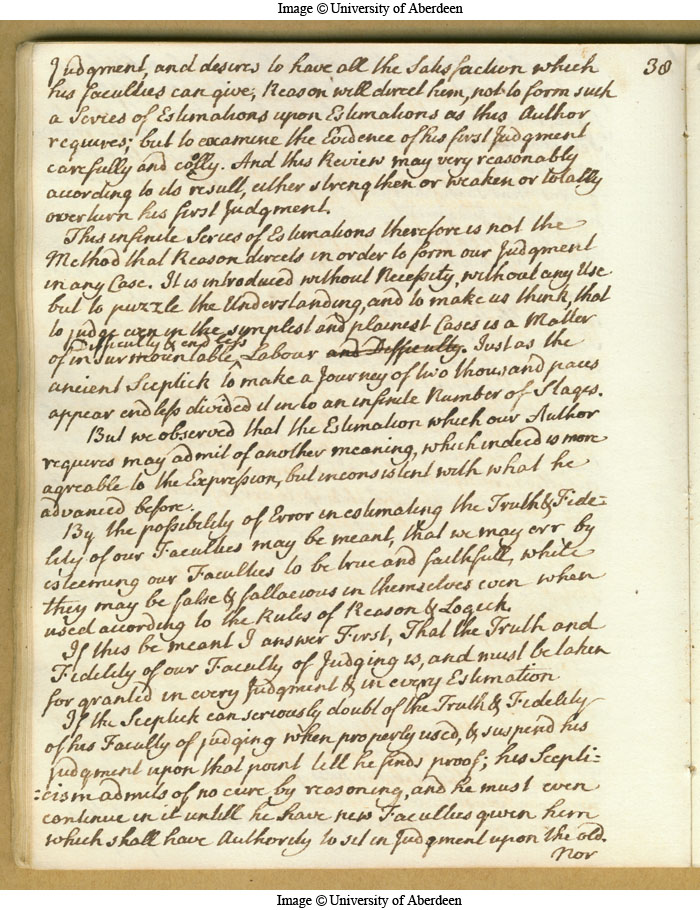 Image © University of Aberdeen
38
Judgment, and desires to have all the Satisfaction which
his faculties can give; Reason will direct him, not to form such
a Series of Estimations upon Estimations as this Author
requires; but to examine the Evidence of his first Judgment
carefully and coolly. And this Review may very reasonably
according to its result, either strengthen or weaken or totally
overturn his first Judgment.
This infinite Series of Estimations therefore is not the
Method that Reason directs in order to form our Judgment
in any Case. It is introduced without Necessity, without any Use
but to puzzle the Understanding, and to make us think, that
to judge even in the symplest and plainest Cases is a Matter
difficulty & endless
of insurmountable ^ Labour and Difficulty. Just as the
ancient Sceptick to make a Journey of two thousand paces
appear endless divided it into an infinite Number of Stages.
But we observed that the Estimation which our Author
requires may admit of another meaning, which indeed is more
agreable to the Expression, but inconsistent with what he
advanced before.
By the possibility of Error in estimating the Truth & Fide=
lity of our Faculties may be meant, that we may err by
esteeming our Faculties to be true and faithfull, while
they may be false & fallacious in themselves even when
used according to the Rules of Reason & Logick.
If this be meant I answer First, That the Truth and
Fidelity of our Faculty of Judging is, and must be taken
for granted in every Judgment & in every Estimation
If the Sceptick can seriously doubt of the Truth & Fidelity
of his Faculty of judging when properly used, & suspend his
judgment upon that point till he finds proof; his Scepti=
=cism admits of no cure by reasoning, and he must even
continue in it untill he have new Faculties given him
which shall have Authority to sit in Judgment upon the old.
Nor
Image © University of Aberdeen